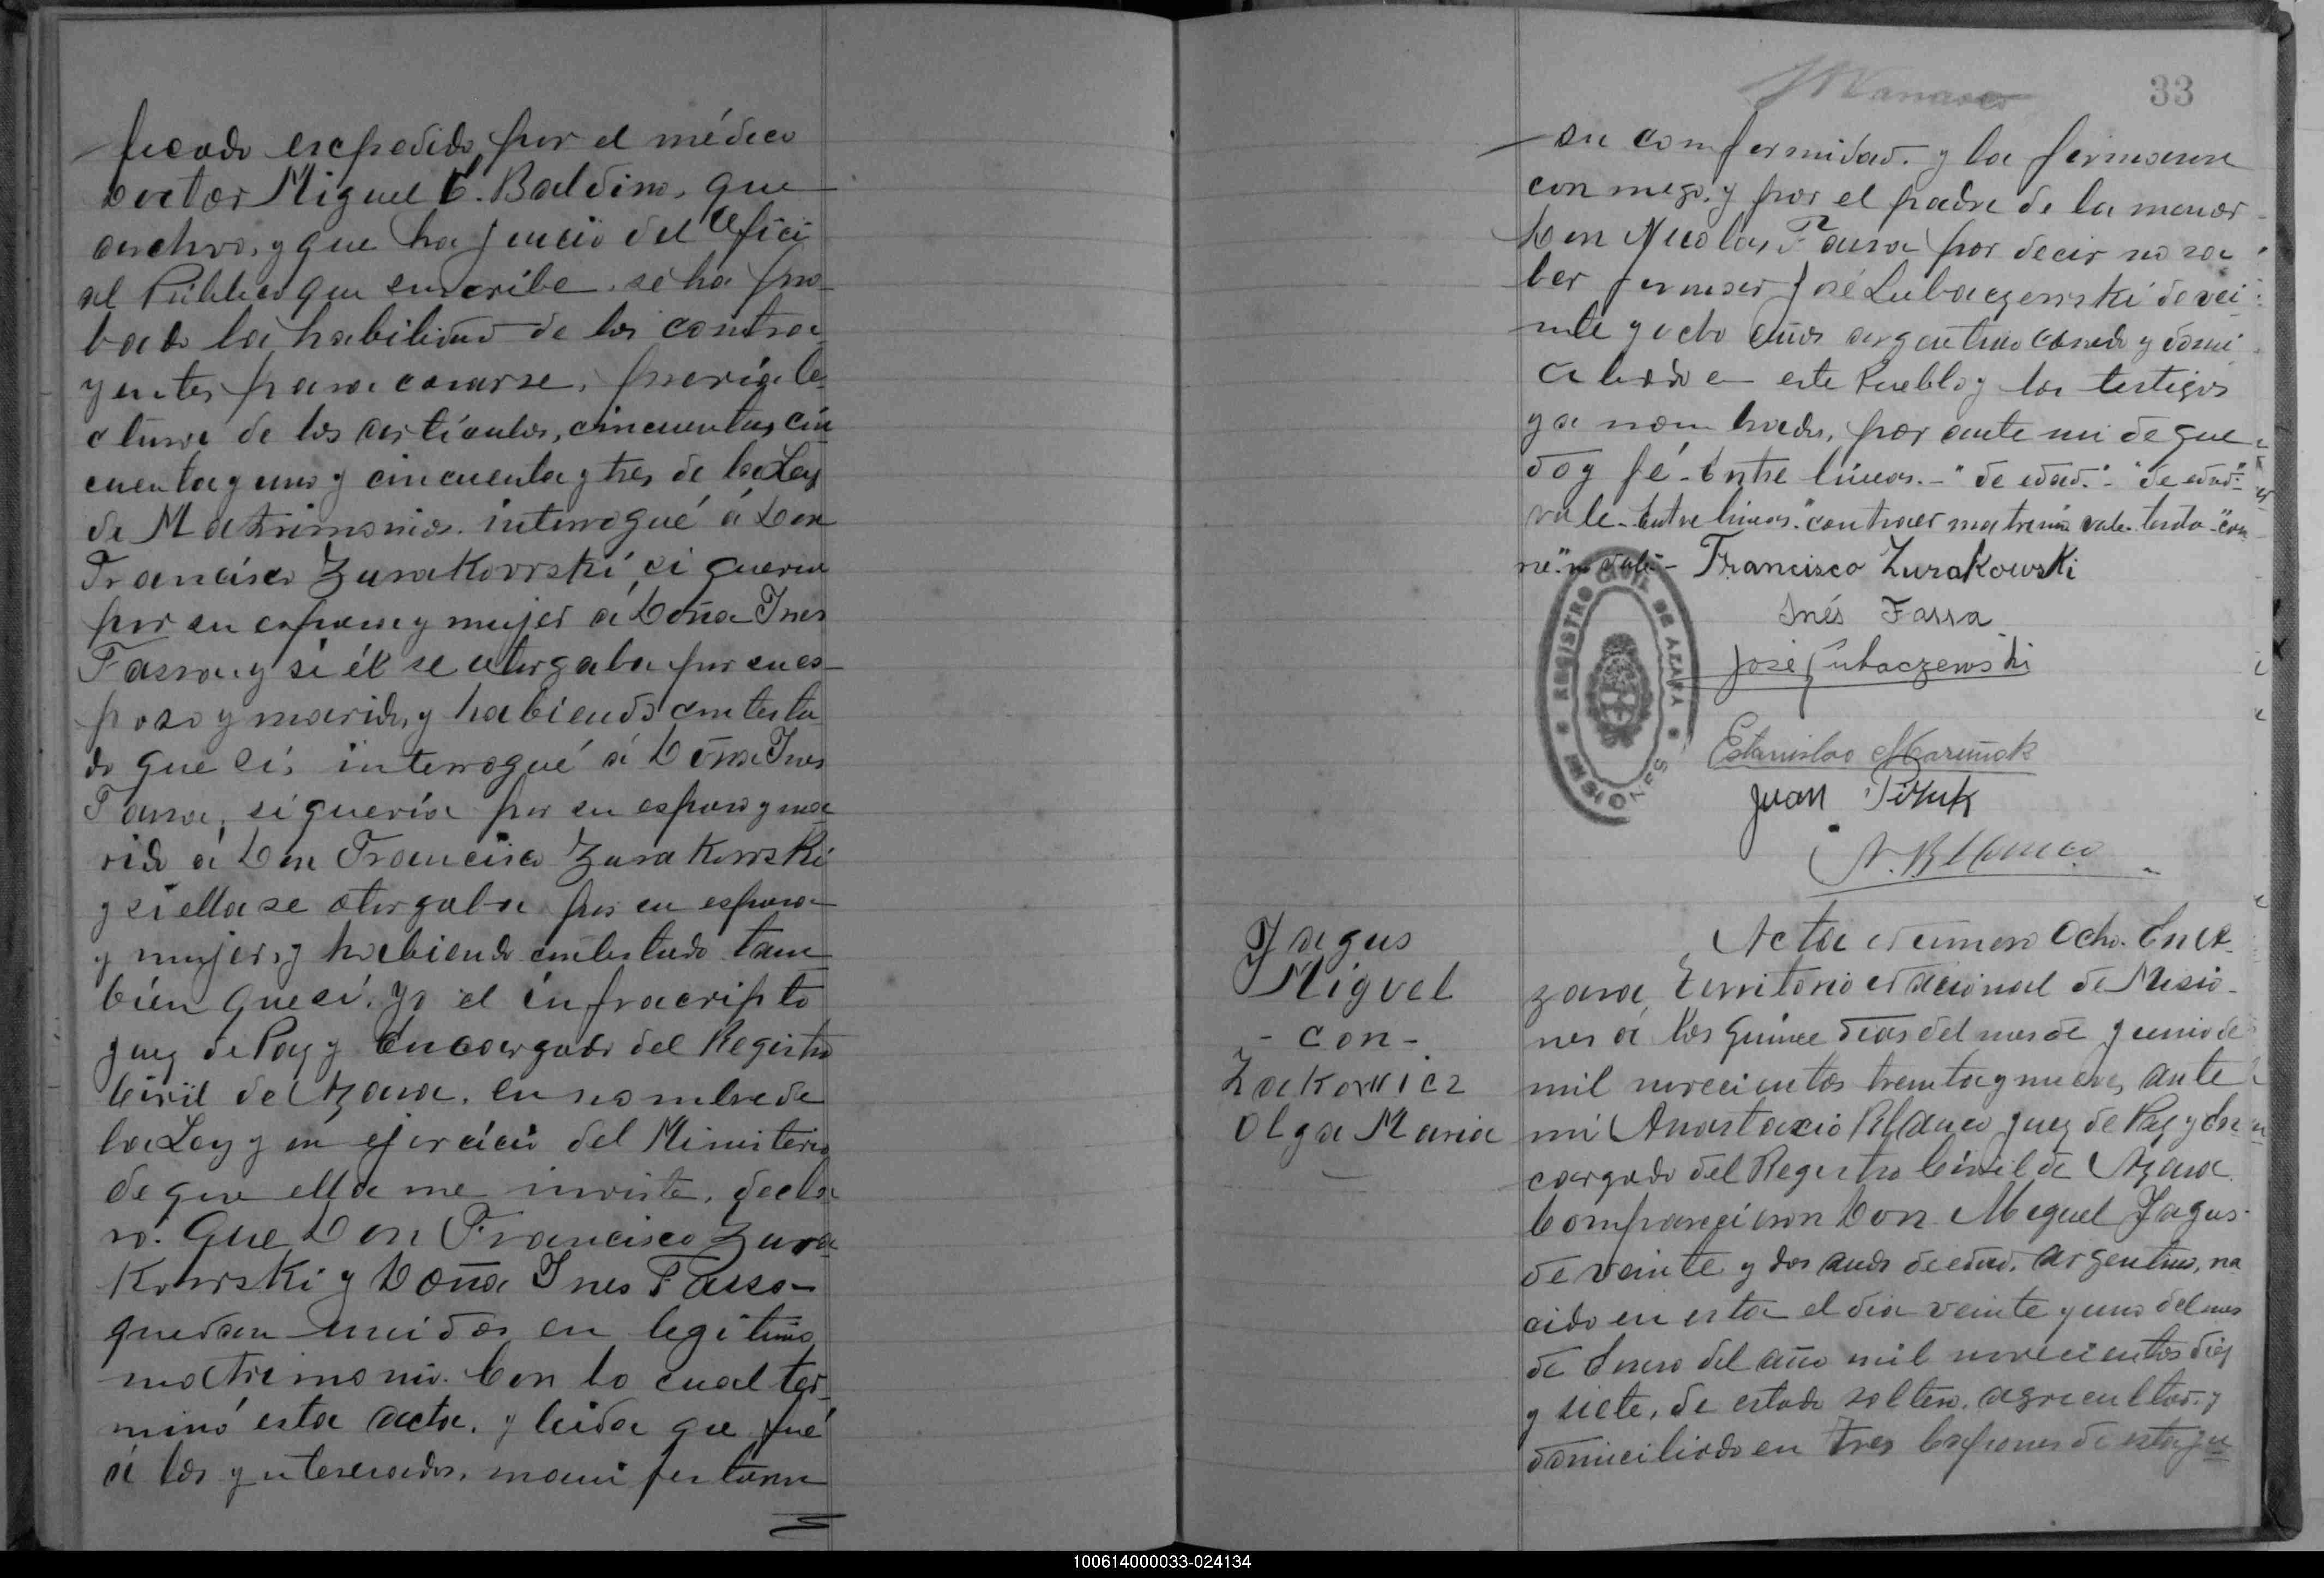 ficado expedido por el médico
Doctor Miguel C. Baldino, que
archivo, y que ha juicio del Ofici
al Público que suscribe, se ha pro-
bado la habilidad de los contra-
yentes para casarse, previa le-
ctura de los artículos, cincuenta, cin
cuenta y uno y cincuenta y tres de la Ley
de Matrimonio. interrogué á Don
Francisco Zurakowski, si queria
por su esposa y mujer á Doña Ines
Fassa, y si él se otorgaba por su es-
poso y marido, y habiendo contesta
do que sí, interrogué á Doña Ines
Fassa, si quería por su esposo y ma
rido á Don Francisco Zurakowski
y si ella se otorgaba por su esposa
y mujer, y habiendo contestado tam
bién que sí. Yo el infrascripto
Juez de Paz y Encargado del Registro
Civil de Azara, en nombre de
la Ley y en ejercicio del Ministerio
de que ella me inviste, decla
ro: Que Don Francisco Zura
Kowski y Doña Ines Fassa
quedan unidos en legitimo
matrimonio. Con lo cual ter-
minó esta acta, y leida que fué
á los ynteresados, manifestaron
33
su conformidad. y la firmaron
conmigo, y por el padre de la menor
Don Nicolas Fassa por decir no sa
ber firmar José Lubaczewski de vei
nte y ocho años argentino casado y domi
ciliado en este Pueblo y los testigos
ya nombrados, por ante mi de que
doy fé - Entre líneas. - "de edad." - "de edad" -
vale - Entre lineas. "contraer matrimº vale. testa - "con
no vale -
Francisco Zurakowski
Inés Fassa
José Lubaczewski
REGISTRO CIVIL DE AZARA
MISIONES
Estanislao
Juan
A. Blanco
Jagus
Miguel
- con -
Zukowicz
Olga Maria
Acta número Ocho. En A
zara, Territorio Nacional de Misio-
nes á los quince dias del mes de Junio de
mil novecientos treinta y nueve, ante
mi Anastacio Blanco Juez de Paz y En
cargado del Registro Civil de Azara
Comparecieron Don Miguel Jagus
de veinte y dos años de edad, argentino, na
cido en esta el dia veinte y uno del mes
de Enero del año mil novecientos diez
y siete, de estado soltero, agricultor, y
domiciliado en Tres Capones de esta ju
100614000033-024134